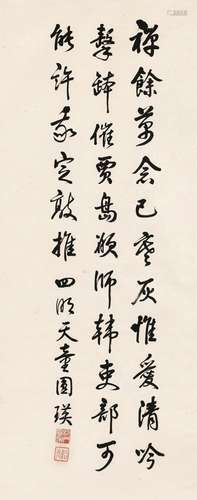 禅餘萬念已寒灰惟愛清吟
擊鉢催賈島欲師韩吏部可
能許我定敲推 四明天童圆瑛